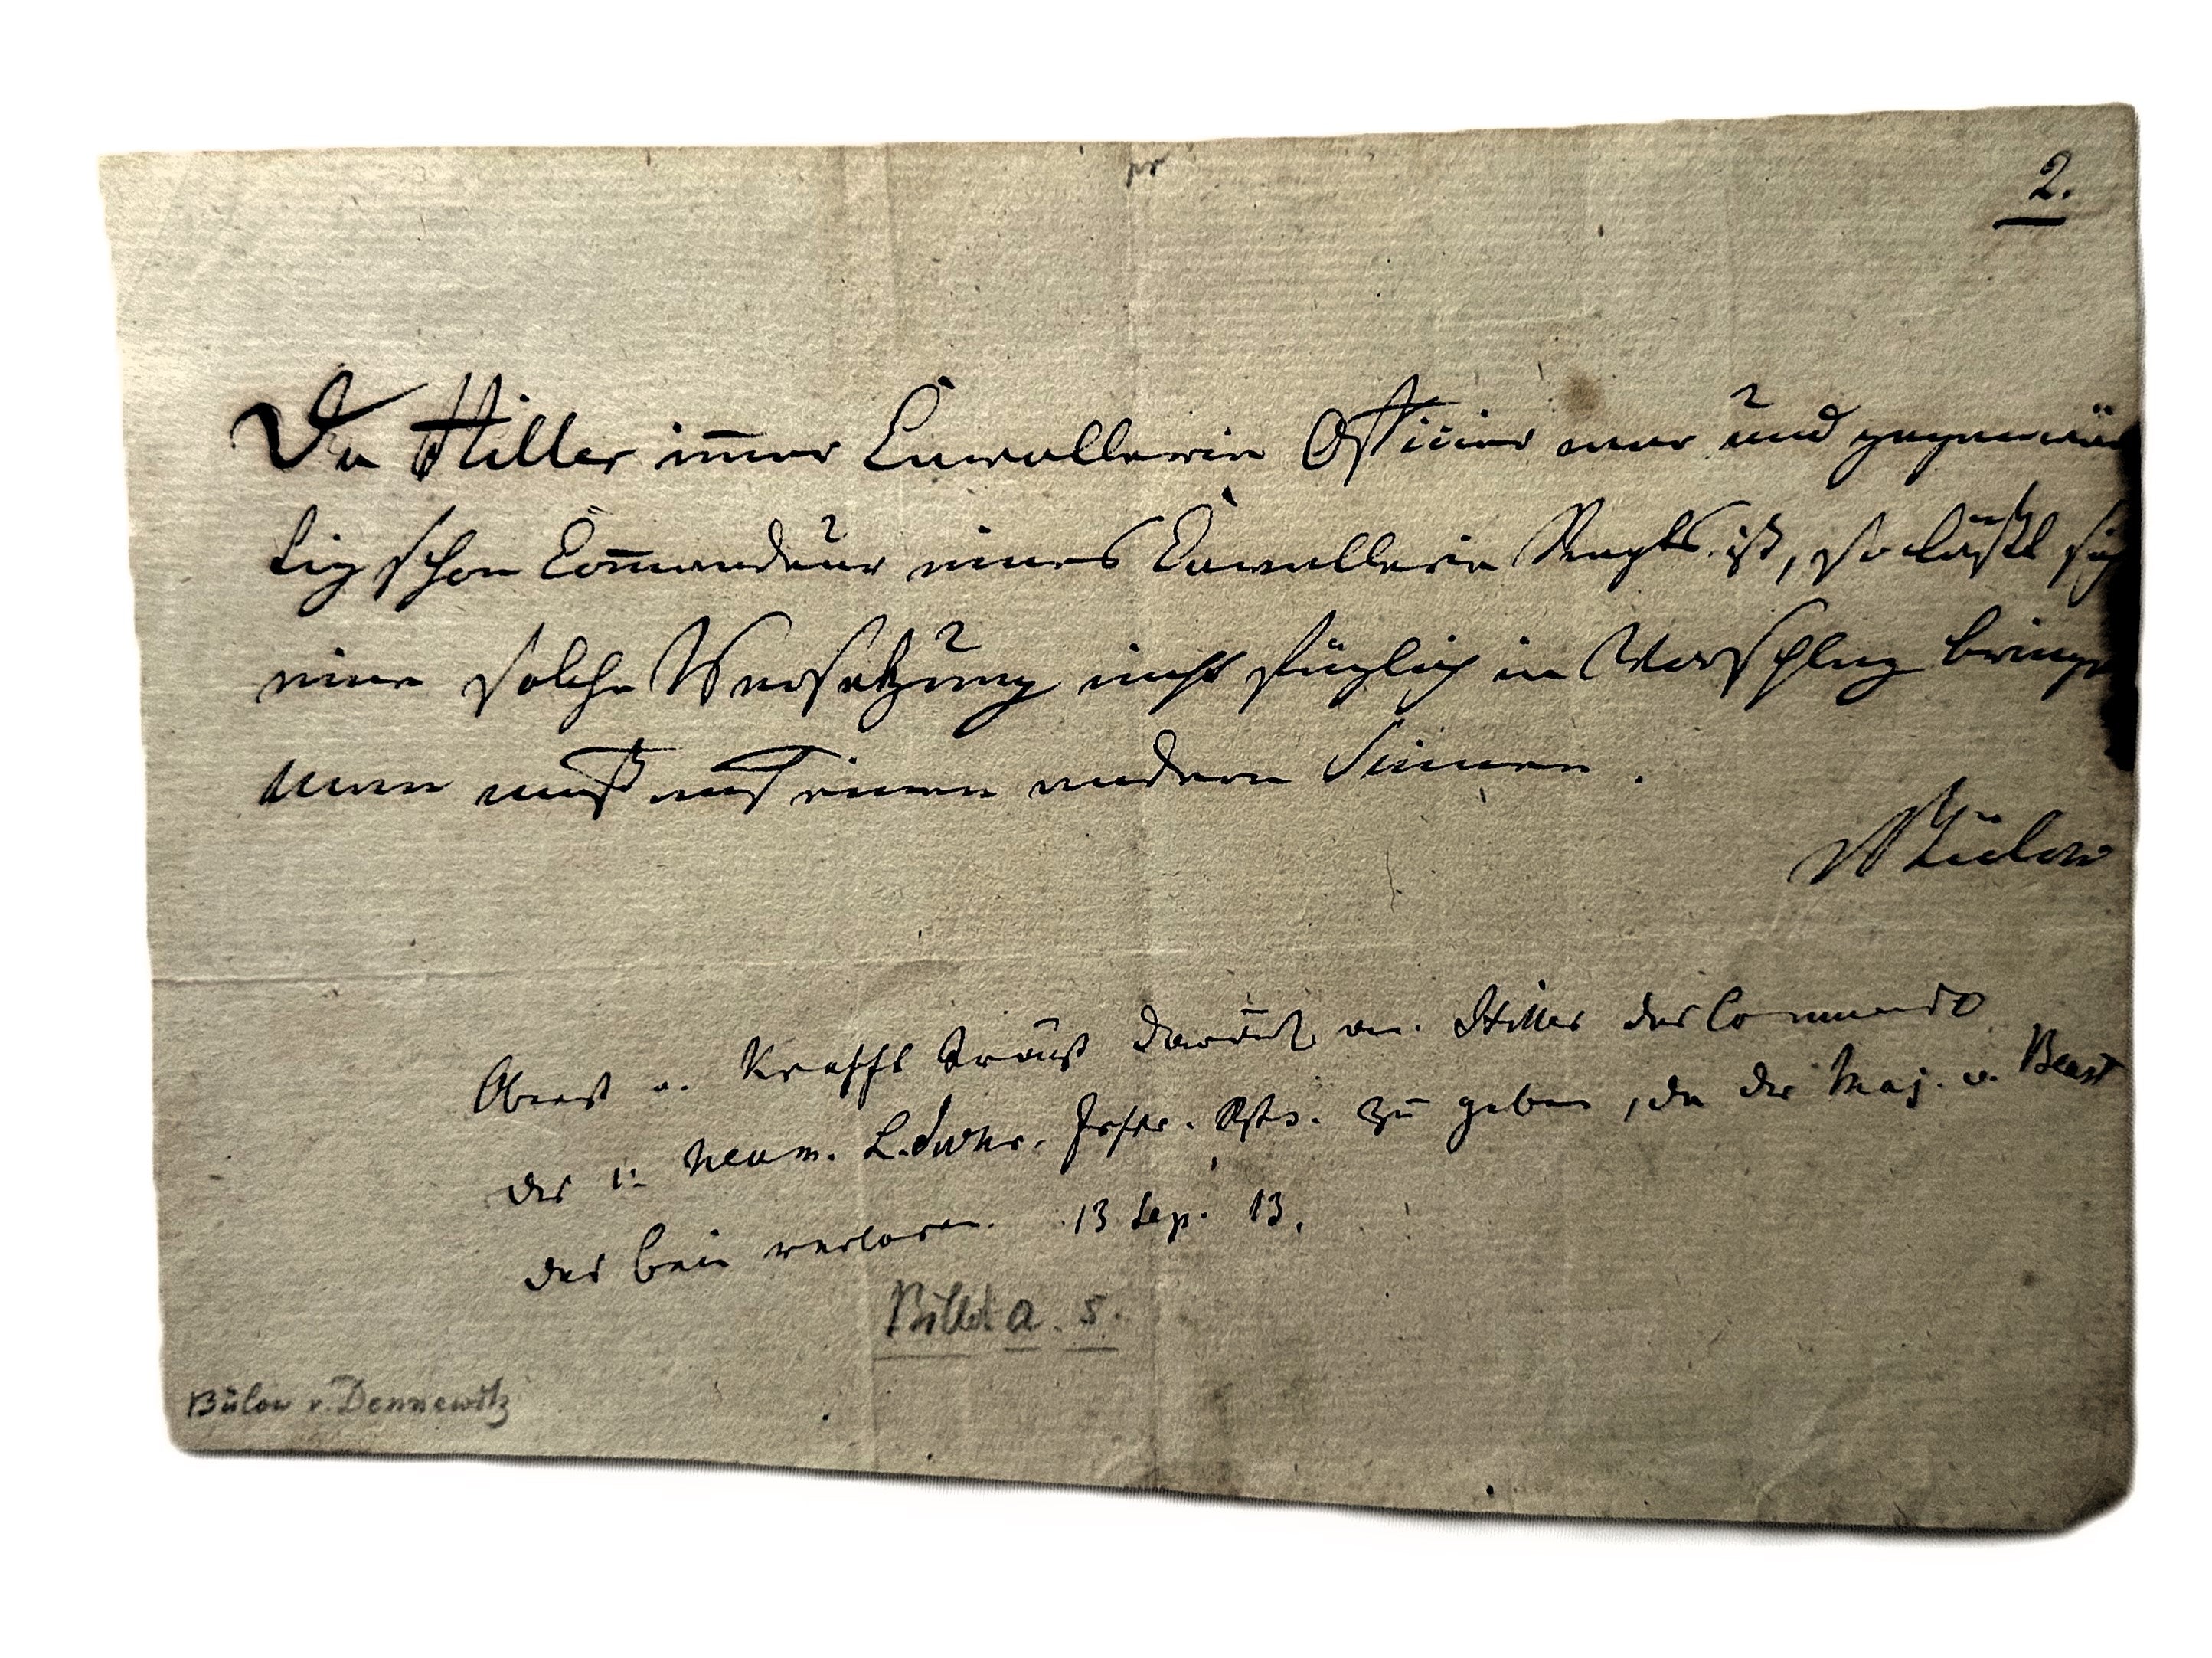 pr
2.
Da Hiller immer Cavallerie Officier war und gegenwär
tig schon Commandeur eines Cavallerie Regts ist, so läßt sich
eine solche Versetzung nicht füglich in Vorschlag bringen
man muß auf einen andern Sinnen.
Bülow
Oberst v. Krafft trägt darauf an. Hiller das Commando
des 1: Neum. L.dwhr. Inftr. Rgts. zu geben, da der Maj. v.
das Bein verloren. 13 Sep. 13.
Billet a. s.
Bülow v. Dennewitz